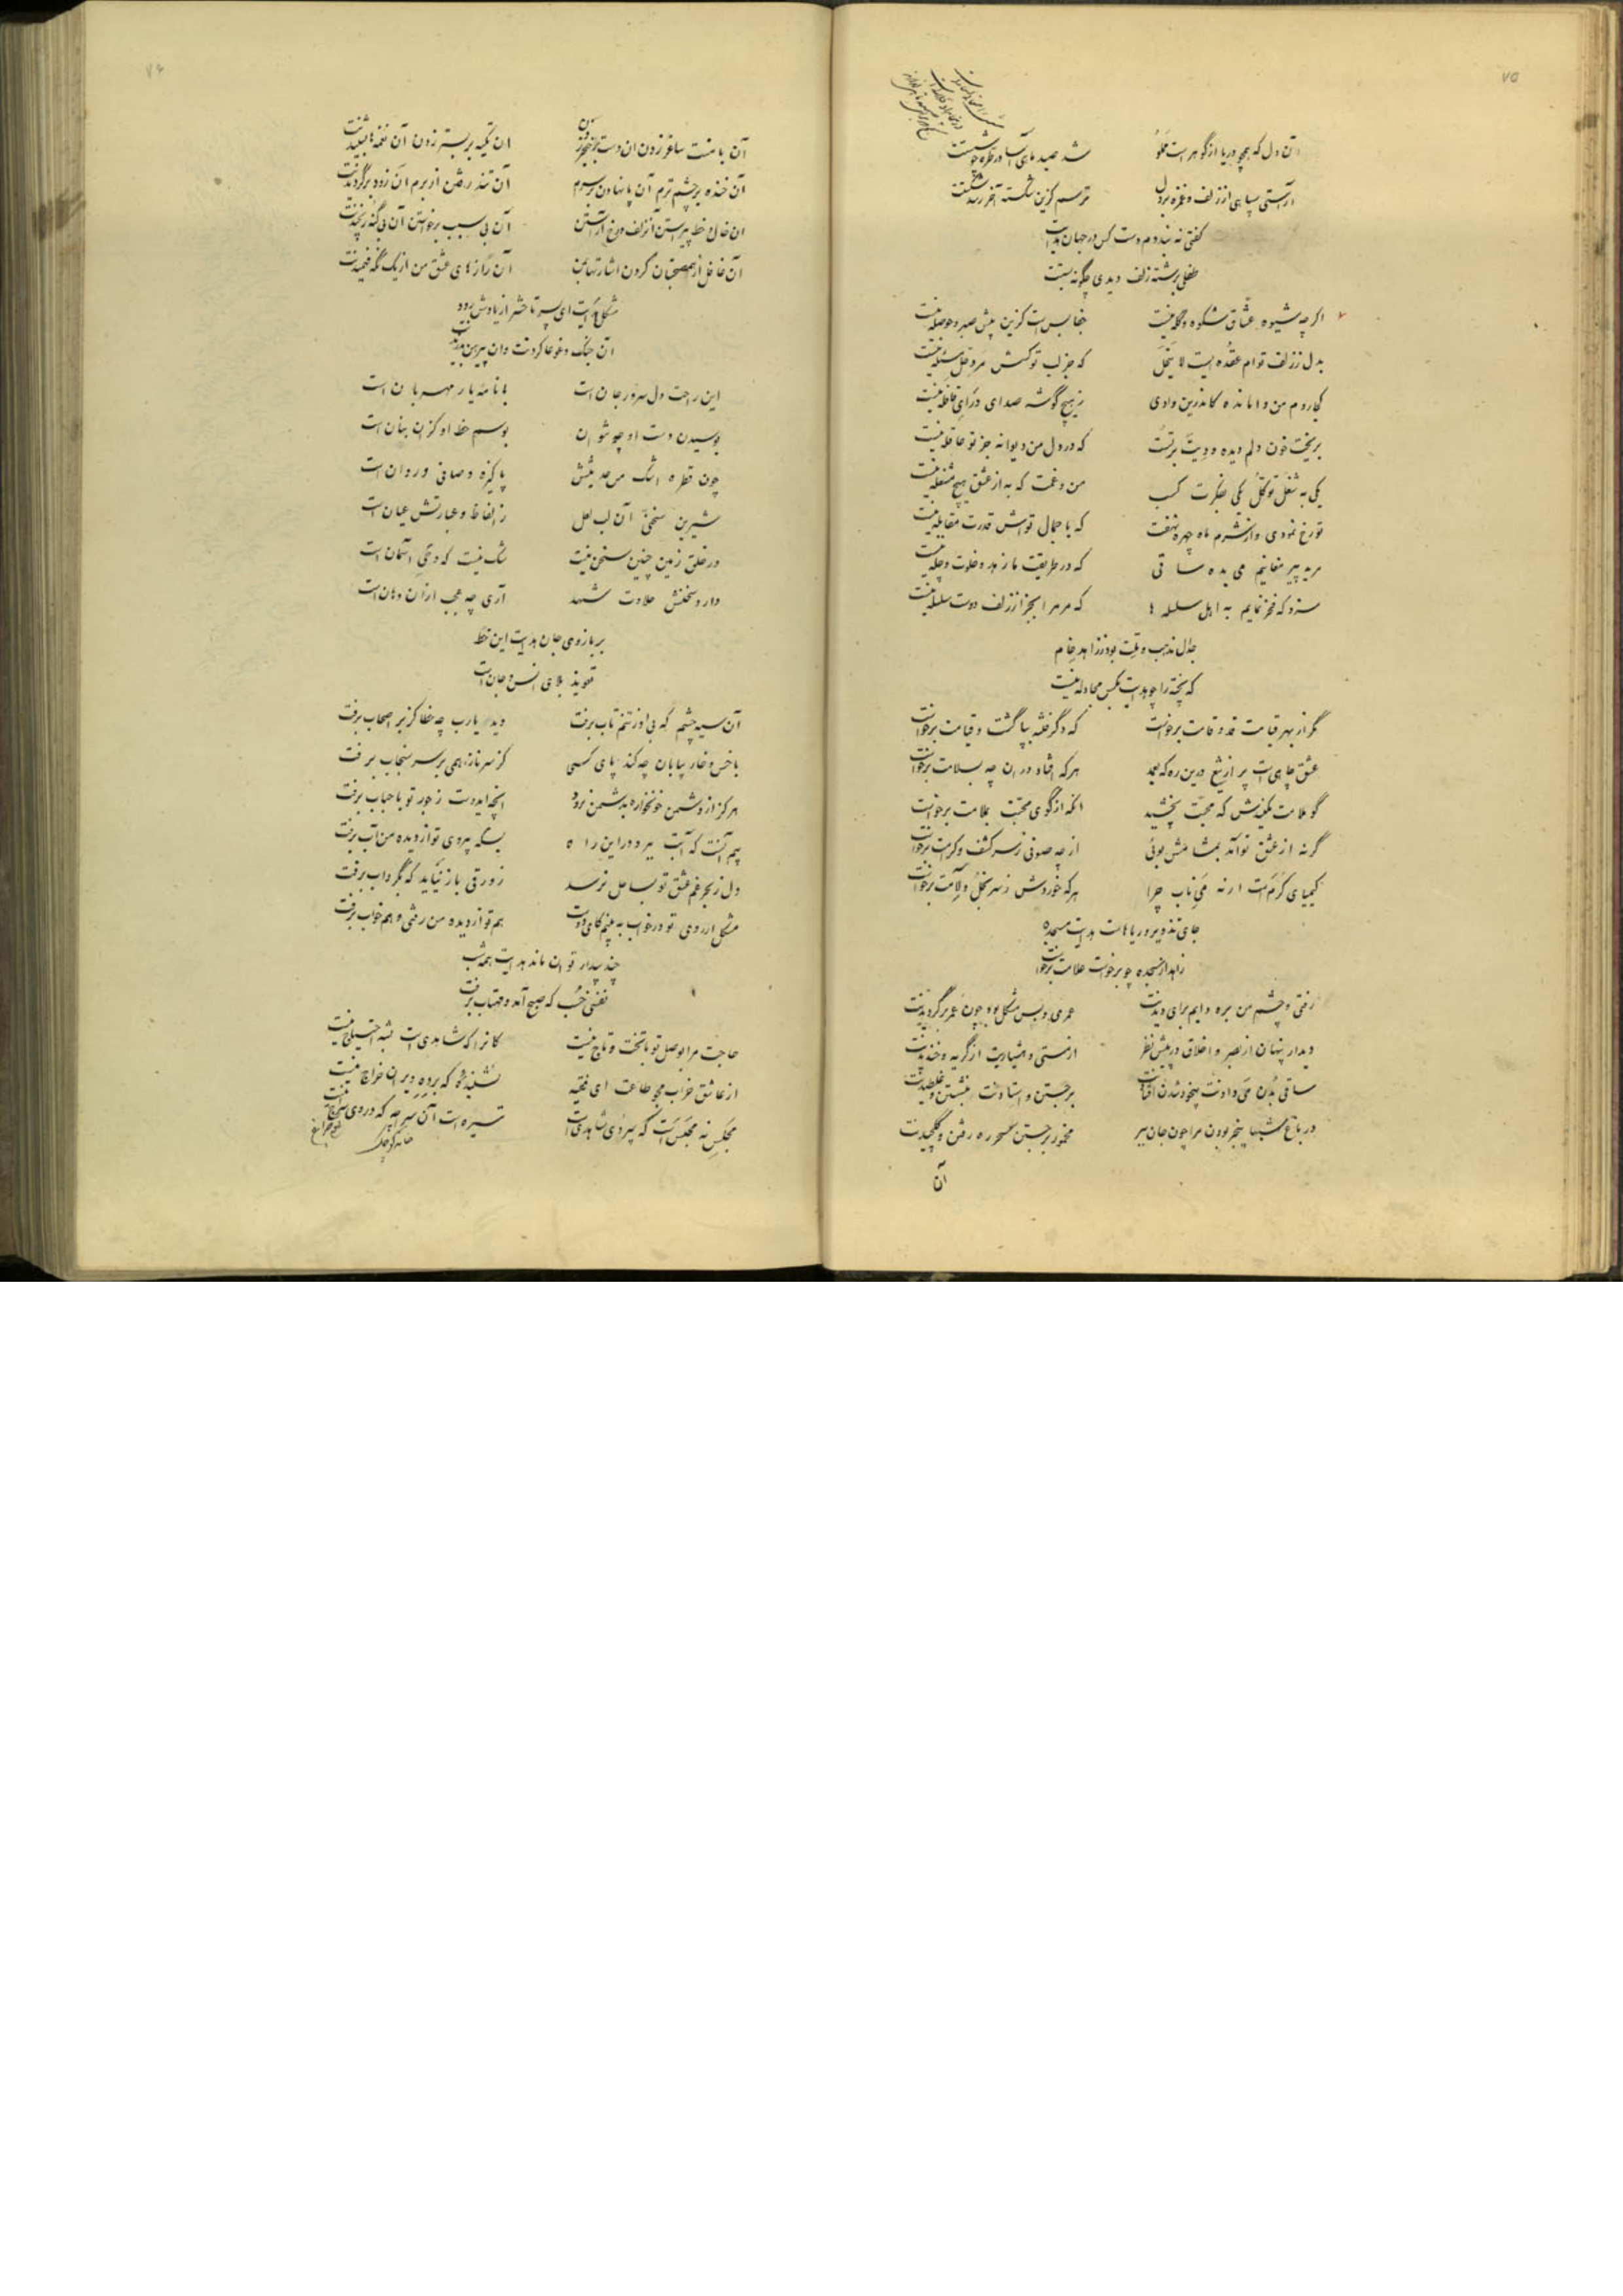 ۷۵
آن دل که همچو دریا از گوهر است مملو شد صید ماهی آسا در طره چو شستت
آراستی سپاهی از زلف و غمزه بر دل ترسم کزین شکسته آخر رسد شکستت
گفتی نه بنددم دست کس در جهان هدایت
طفلی برشته زلف دیدی چگونه بستت
اگرچه شیوه عشاق شکوه و گله نیست جفا بس است کزین بیش صبر و حوصله نیست
بدل ز زلف توام عقده ایست لا ینحل که جز لب تو کسش مرد حل مسئله نیست
کجا روم من وامانده کاندرین وادی ز هیچ گوشه صدای درای قافله نیست
بریخت خون دلم دیده و دیت بر تست که در دل من دیوانه جز تو عاقله نیست
یکی به شغل توکل یکی بفکرت کسب من و غمت که به از عشق هیچ مشغله نیست
تو رخ نمودی و از شرم ماه چهره نهفت که با جمال تواش قدرت مقابله نیست
مرید پیر مغانیم می بده ساقی که در طریقت ما زهد و خلوت و چله نیست
سزد که فخر نمایم به اهل سلسله ها که مر مرا بجز از زلف دوست سلسله نیست
جدال مذهب و ملت بود ز زاهد خام
که پخته را چو هدایت بکس مجادله نیست
مگر از بهر قیامت قد و قامت برخواست که دگر فتنه بپا گشت و قیامت برخواست
عشق چاهی است پر از تیغ درین ره که بعمد هرکه افتاد در ان چه بسلامت برخواست
گو ملامت مکنیدش که محبت بخشید انکه از کوی محبت بملامت برخواست
گرنه از عشق تو آمد بمشامش بوئی از چه صوفی ز سر کشف و کرامت برخواست
کیمیای کرم است ارنه می ناب چرا هرکه خوردش ز سر بخل و لآمت برخواست
جای تذویر و ریاهاست هدایت مسجد
زاهد از سجده چو برخواست علامت برخواست
رفتی و چشم من بره دایم برای دیدنت عمری و بس مشکل بود چون عمر برگردیدنت
دیدار پنهان از بصر و اخلاق در پیش نظر از مستی و هشیاریت از گریه و خندیدنت
ساقی بدن می دادنت بیخود شدن افتادنت برجستن و استادنت بنشستن و غلطیدنت
در باغ شبها بیخبر بودن مرا چون جان ببر مخمور برجستن سحر ره رفتن و گلچیدنت
آن
۷۶
آن با منت ساغر زدن ان دست بر خنجر زدن ان تکیه بر بستر زدن آن نغمها بشنیدنت
آن خنده بر چشم ترم آن پا نهادن بر سرم آن تند رفتن از برم آن زود برگردیدنت
ان خال خط پیراستن آن زلف و رخ آراستن آن بی سبب برخواستن آن بی گنه رنجیدنت
آن غافل از هم صحبتان کردن اشارتها بمن آن رازهای عشق من از یک نگه فهمیدنت
مشکل هدایت ای پسر تا حشر از یادش رود
آن جنگ و غوغا کردنت وان پیرهن بدریدنت
این راحت دل سرور جان است یا نامهٔ یار مهربان است
بوسیدن دست او چو نتوان بوسم خط او کزان بنان است
چون قطره اشک من حدیثش پاکیزه و صافی و روان است
شیرین سخنی آن لب لعل ز الفاظ و عبارتش عیان است
در خلق زمین چنین سخن نیست شک نیست که وحی آسمان است
دارد سخنش حلاوت شهد آری چه عجب ازان دهان است
بر بازوی جان هدایت این خط
تعویذ بلای انس و جان است
آن سیه چشم که بی او ز تنم تاب برفت دید یارب چه خطا کز بر اصحاب برفت
با خس و خار بیابان چه کند پای کسی کز سر ناز همی بر سر سنجاب برفت
هرکز از دشمن خونخواره بدشمن نرود انچه ایدوست ز جور تو باحباب برفت
بیم آنست که آب ببرد در این راه بسکه بیروی تو از دیده من آب برفت
دل ز بحر غم عشق تو بساحل نرسد زورقی باز نیاید که بگرداب برفت
مشکل ار روی تو در خواب به بینم کایدوست هم تو از دیده من رفتی و هم خواب برفت
چند بیدار توان ماند هدایت همه شب
نفسی خسب که صبح آمد و مهتاب برفت
حاجت مرا بوصل تو با تخت و تاج نیست کانرا که شاهدی است بشه احتیاج نیست
از عاشق خراب مجو طاعت ای فقیه نشنیدهٔ که برده ویران خراج نیست
مجلس نه مجلس است که بیروی شاهدی است تیره است آن سرچه که در وی سراج نیست
خانه کوچک